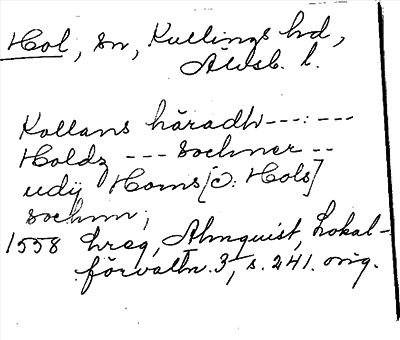 Hol, sn, Kullings hd,
Älvsb. l.
Kollans häradh---:---
Holdz --- sochner --
udij Homs [ɔ: Hols]
sochnn;
1558 hreg, Almquist, Lokal-
förvaltn. 3, s. 241. orig.